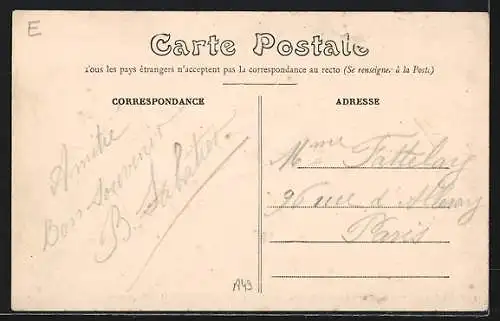 E
Carte Postale
Tous les pays étrangers n'acceptent pas la correspondance au recto (Se renseigner à la Poste)
CORRESPONDANCE
Amitié
Bon Souvenir
B. Sabatier.
ADRESSE
Mme Fattelay
96 rue d'Alleray
Paris
A43